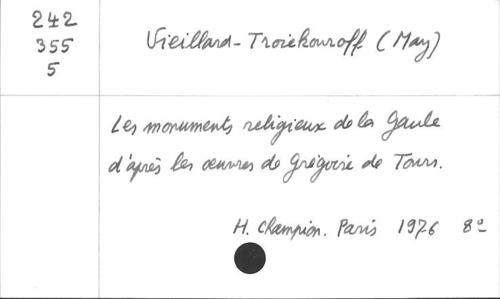 242
355
5
Vieillard-Troiekouroff (May)
Les monuments religieux de la Gaule
d'après les œuvres de Grégoire de Tours.
H. Champion. Paris 1976 8º